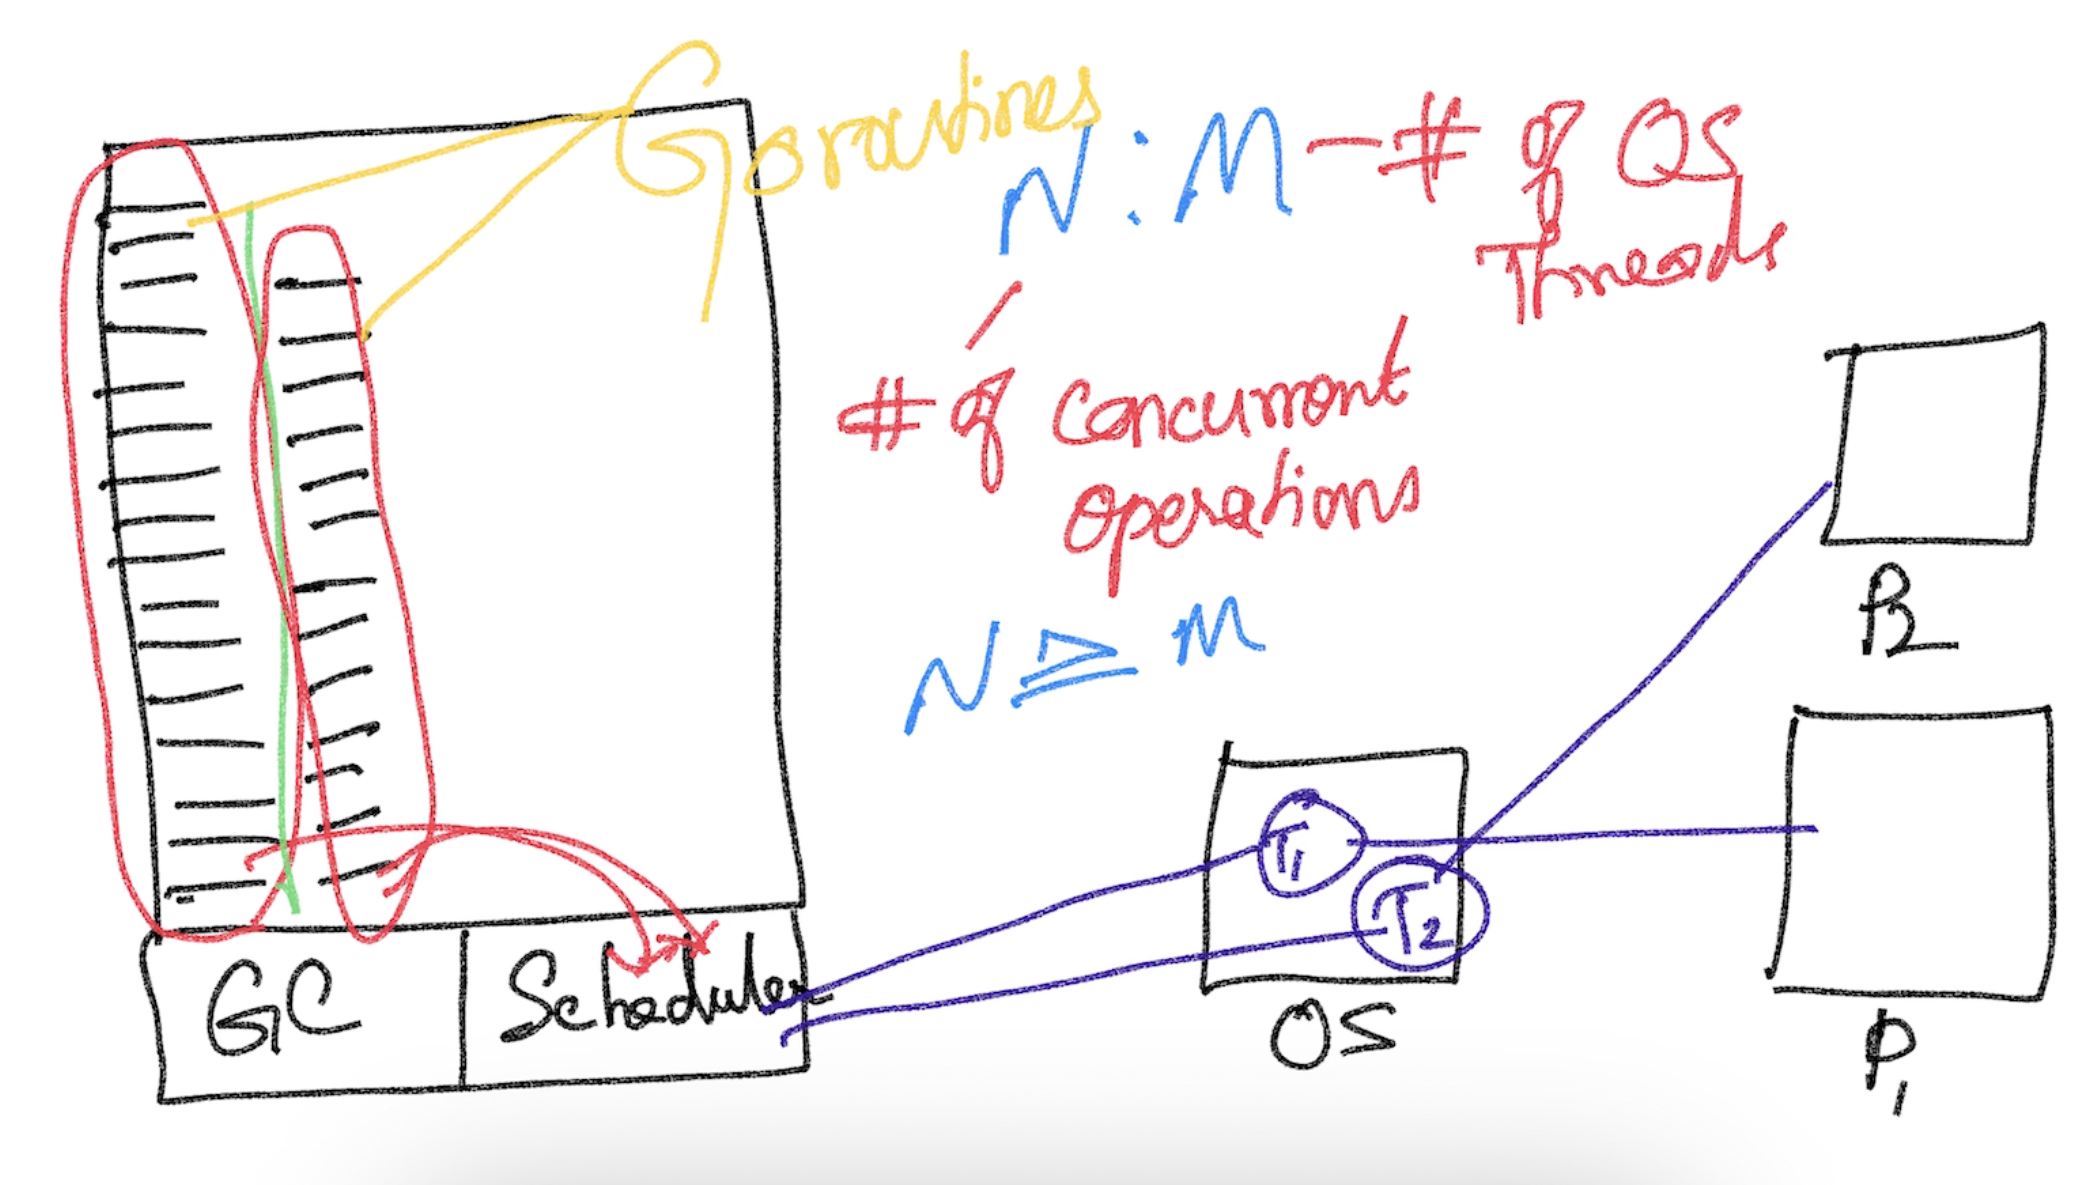 Goroutines
N : M - # of OS
Threads
# of concurrent
operations
N ≥ M
P2
T1
T2
GC
Scheduler
OS
P1